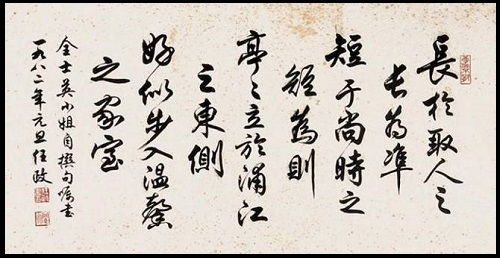 長於取人之
长為準
短于尚時之
短為則
亭々立於浦江
之東側
好似步入温馨
之家室
金士英小姐自撰句嘱書
一九八二年元旦任政